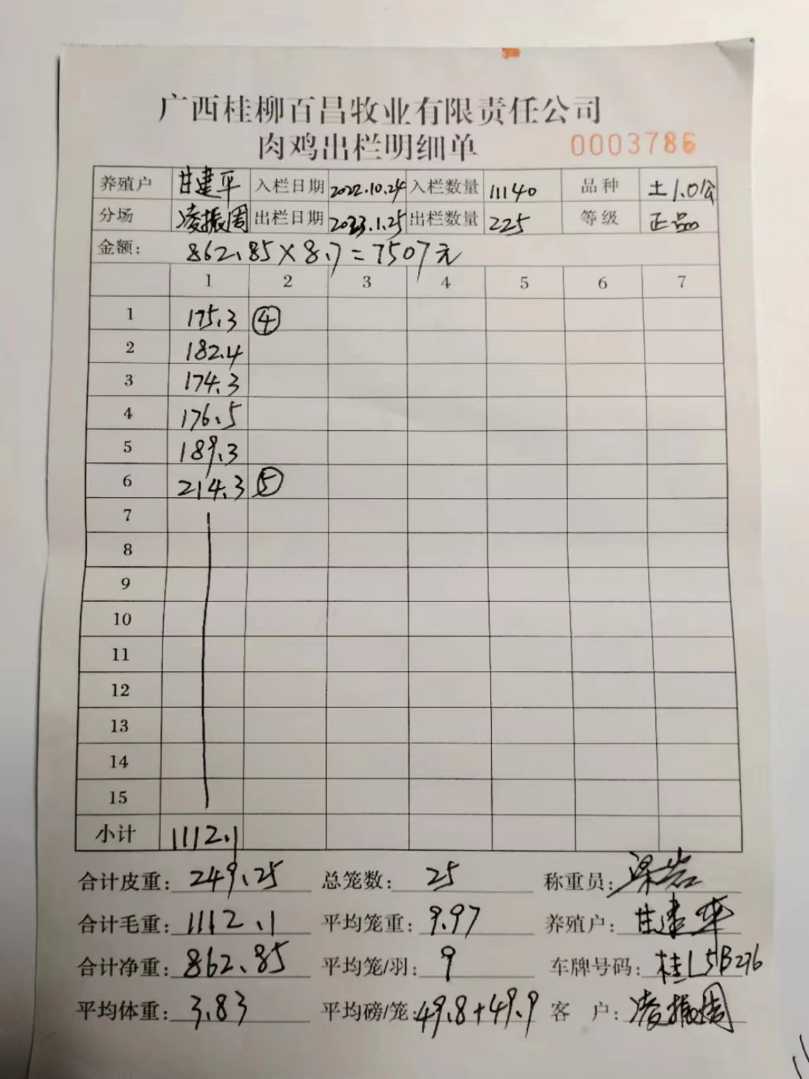 广西桂柳百昌牧业有限责任公司
肉鸡出栏明细单 0003786
养殖户 甘建平 入栏日期 2022.10.24 入栏数量 11140 品种 土1.0公
分场 凌振周 出栏日期 2023.1.25 出栏数量 225 等级 正品
金额: 862.85×8.7=7507元
1 2 3 4 5 6 7
1 175.3 ④
2 182.4
3 174.3
4 176.5
5 189.3
6 214.3 ⑤
7
8
9
10
11
12
13
14
15
小计 1112.1
合计皮重: 249.25 总笼数: 25 称重员: 梁岩
合计毛重: 1112.1 平均笼重: 9.97 养殖户: 甘建平
合计净重: 862.85 平均笼/羽: 9 车牌号码: 桂L5B276
平均体重: 3.83 平均磅/笼: 49.8+49.9 客户: 凌振周